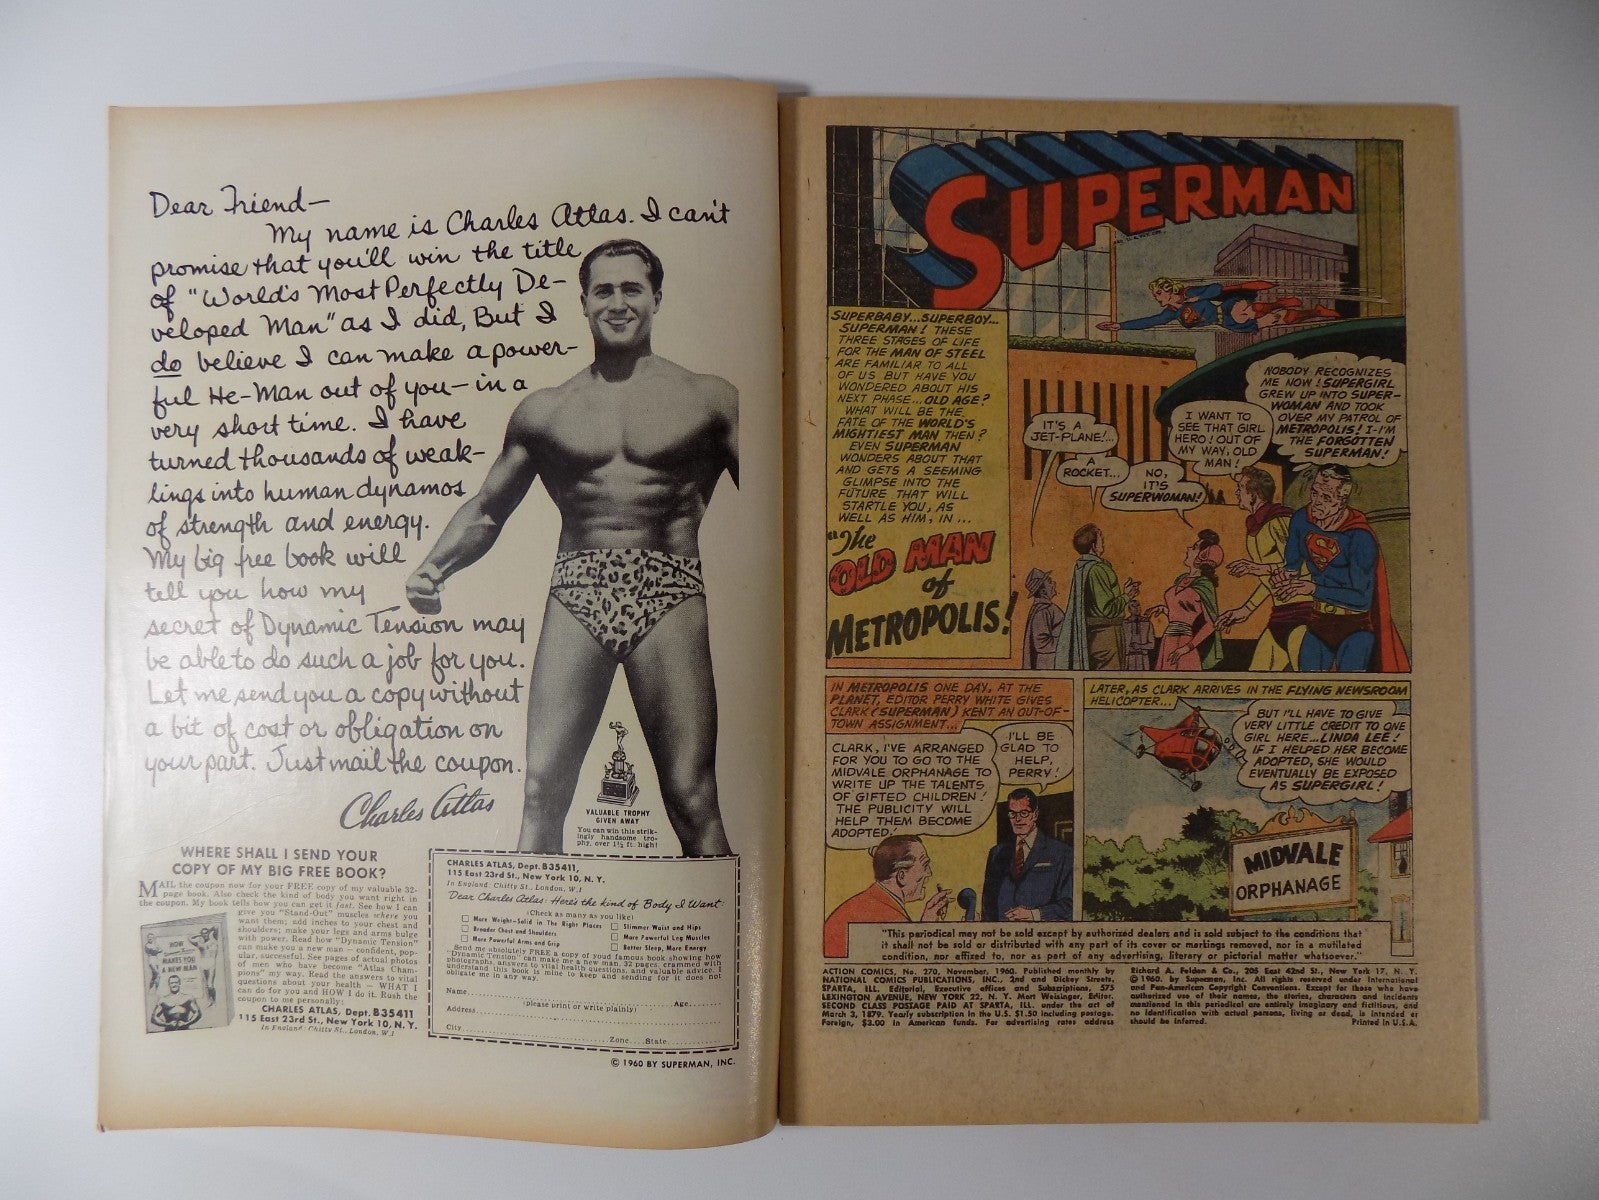 Dear Friend—
My name is Charles Atlas. I can't
promise that you'll win the title
of "World's Most Perfectly De-
veloped Man" as I did, But I
do believe I can make a power-
ful He-Man out of you—in a
very short time. I have
turned thousands of weak-
lings into human dynamos
of strength and energy.
My big free book will
tell you how my
secret of Dynamic Tension may
be able to do such a job for you.
Let me send you a copy without
a bit of cost or obligation on
your part. Just mail the coupon.
Charles Atlas
VALUABLE TROPHY
GIVEN AWAY
You can win this strik-
ingly handsome tro-
phy, over 1½ ft. high!
WHERE SHALL I SEND YOUR
COPY OF MY BIG FREE BOOK?
MAIL the coupon now for your FREE copy of my valuable 32-
page book. Also check the kind of body you want right in
the coupon. My book tells how you can get it fast. See how I can
give you "Stand-Out" muscles where you
want them; add inches to your chest and
shoulders; make your legs and arms bulge
with power. Read how "Dynamic Tension"
can make you a new man — confident, pop-
ular, successful. See pages of actual photos
of men who have become "Atlas Cham-
pions" my way. Read the answers to vital
questions about your health — WHAT I
can do for you and HOW I do it. Rush the
coupon to me personally:
CHARLES ATLAS, Dept. B35411
115 East 23rd St., New York 10, N. Y.
In England: Chitty St., London, W.1
HOW
MAKES YOU
A NEW MAN
CHARLES ATLAS, Dept. B35411,
115 East 23rd St., New York 10, N. Y.
In England: Chitty St., London, W.1
Dear Charles Atlas: Here's the kind of Body I Want:
(Check as many as you like)
More Weight—Solid in The Right Places
Broader Chest and Shoulders
More Powerful Arms and Grip
Slimmer Waist and Hips
More Powerful Leg Muscles
Better Sleep, More Energy
Send me absolutely FREE a copy of youd famous book showing how
"Dynamic Tension" can make me a new man. 32 pages, crammed with
photographs, answers to vital health questions, and valuable advice. I
understand this book is mine to keep and sending for it does not
obligate me in any way.
Name
Age
(please print or write plainly)
Address
City
Zone
State
© 1960 BY SUPERMAN, INC.
SUPERMAN
SUPERBABY...SUPERBOY...
SUPERMAN! THESE
THREE STAGES OF LIFE
FOR THE MAN OF STEEL
ARE FAMILIAR TO ALL
OF US BUT HAVE YOU
WONDERED ABOUT HIS
NEXT PHASE...OLD AGE?
WHAT WILL BE THE
FATE OF THE WORLD'S
MIGHTIEST MAN THEN?
EVEN SUPERMAN
WONDERS ABOUT THAT
AND GETS A SEEMING
GLIMPSE INTO THE
FUTURE THAT WILL
STARTLE YOU, AS
WELL AS HIM, IN...
"The
OLD MAN
of
METROPOLIS!
IT'S A
JET-PLANE!...
A
ROCKET...
NO,
IT'S
SUPERWOMAN!
I WANT TO
SEE THAT GIRL
HERO! OUT OF
MY WAY, OLD
MAN!
NOBODY RECOGNIZES
ME NOW! SUPERGIRL
GREW UP INTO SUPER-
WOMAN AND TOOK
OVER MY PATROL OF
METROPOLIS! I-I'M
THE FORGOTTEN
SUPERMAN!
IN METROPOLIS ONE DAY, AT THE
PLANET, EDITOR PERRY WHITE GIVES
CLARK (SUPERMAN) KENT AN OUT-OF-
TOWN ASSIGNMENT...
CLARK, I'VE ARRANGED
FOR YOU TO GO TO THE
MIDVALE ORPHANAGE TO
WRITE UP THE TALENTS
OF GIFTED CHILDREN!
THE PUBLICITY WILL
HELP THEM BECOME
ADOPTED.
I'LL BE
GLAD TO
HELP,
PERRY!
LATER, AS CLARK ARRIVES IN THE FLYING NEWSROOM
HELICOPTER...
BUT I'LL HAVE TO GIVE
VERY LITTLE CREDIT TO ONE
GIRL HERE...LINDA LEE!
IF I HELPED HER BECOME
ADOPTED, SHE WOULD
EVENTUALLY BE EXPOSED
AS SUPERGIRL!
MIDVALE
ORPHANAGE
"This periodical may not be sold except by authorized dealers and is sold subject to the conditions that
it shall not be sold or distributed with any part of its cover or markings removed, nor in a mutilated
condition, nor affixed to, nor as part of any advertising, literary or pictorial matter whatsoever."
ACTION COMICS, No. 270, November, 1960. Published monthly by
NATIONAL COMICS PUBLICATIONS, INC., 2nd and Dickey Streets,
SPARTA, ILL. Editorial, Executive offices and Subscriptions, 575
LEXINGTON AVENUE, NEW YORK 22, N. Y. Mort Weisinger, Editor.
SECOND CLASS POSTAGE PAID AT SPARTA, ILL. under the act of
March 3, 1879. Yearly subscription in the U.S. $1.50 including postage.
Foreign, $3.00 in American funds. For advertising rates address
Richard A. Feldon & Co., 205 East 42nd St., New York 17, N. Y.
© 1960, by Superman, Inc. All rights reserved under International
and Pan-American Copyright Conventions. Except for those who have
authorized use of their names, the stories, characters and incidents
mentioned in this periodical are entirely imaginary and fictitious, and
no identification with actual persons, living or dead, is intended or
should be inferred.
Printed in U.S.A.